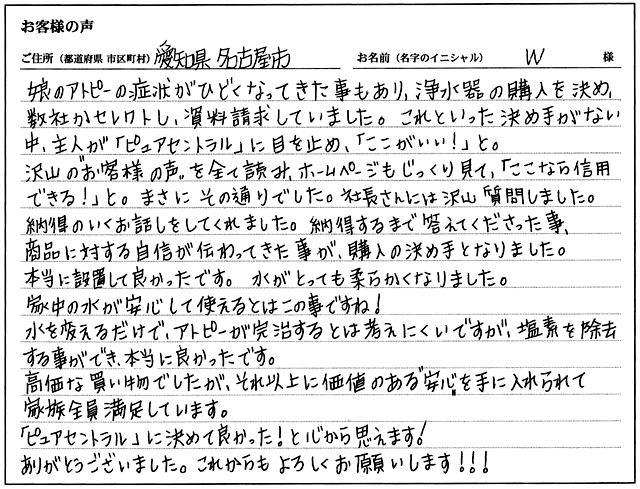 お客様の声
ご住所（都道府県 市区町村）愛知県 名古屋市 お名前（名字のイニシャル） W 様
娘のアトピーの症状がひどくなってきた事もあり、浄水器の購入を決め、
数社かセレクトし、資料請求していました。これといった決め手がない
中、主人が「ピュアセントラル」に目を止め、「ここがいい！」と。
沢山の"お客様の声"を全て読み、ホームページもじっくり見て、「ここなら信用
できる！」と。まさにその通りでした。社長さんには沢山質問しました。
納得のいくお話しをしてくれました。納得するまで答えてくださった事、
商品に対する自信が伝わってきた事が、購入の決め手となりました。
本当に設置して良かったです。水がとっても柔らかくなりました。
家中の水が安心して使えるとはこの事ですね！
水を変えるだけで、アトピーが完治するとは考えにくいですが、塩素を除去
する事ができ、本当に良かったです。
高価な買い物でしたが、それ以上に価値のある"安心"を手に入れられて
家族全員満足しています。
「ピュアセントラル」に決めて良かった！と心から思えます！
ありがとうございました。これからもよろしくお願いします！！！